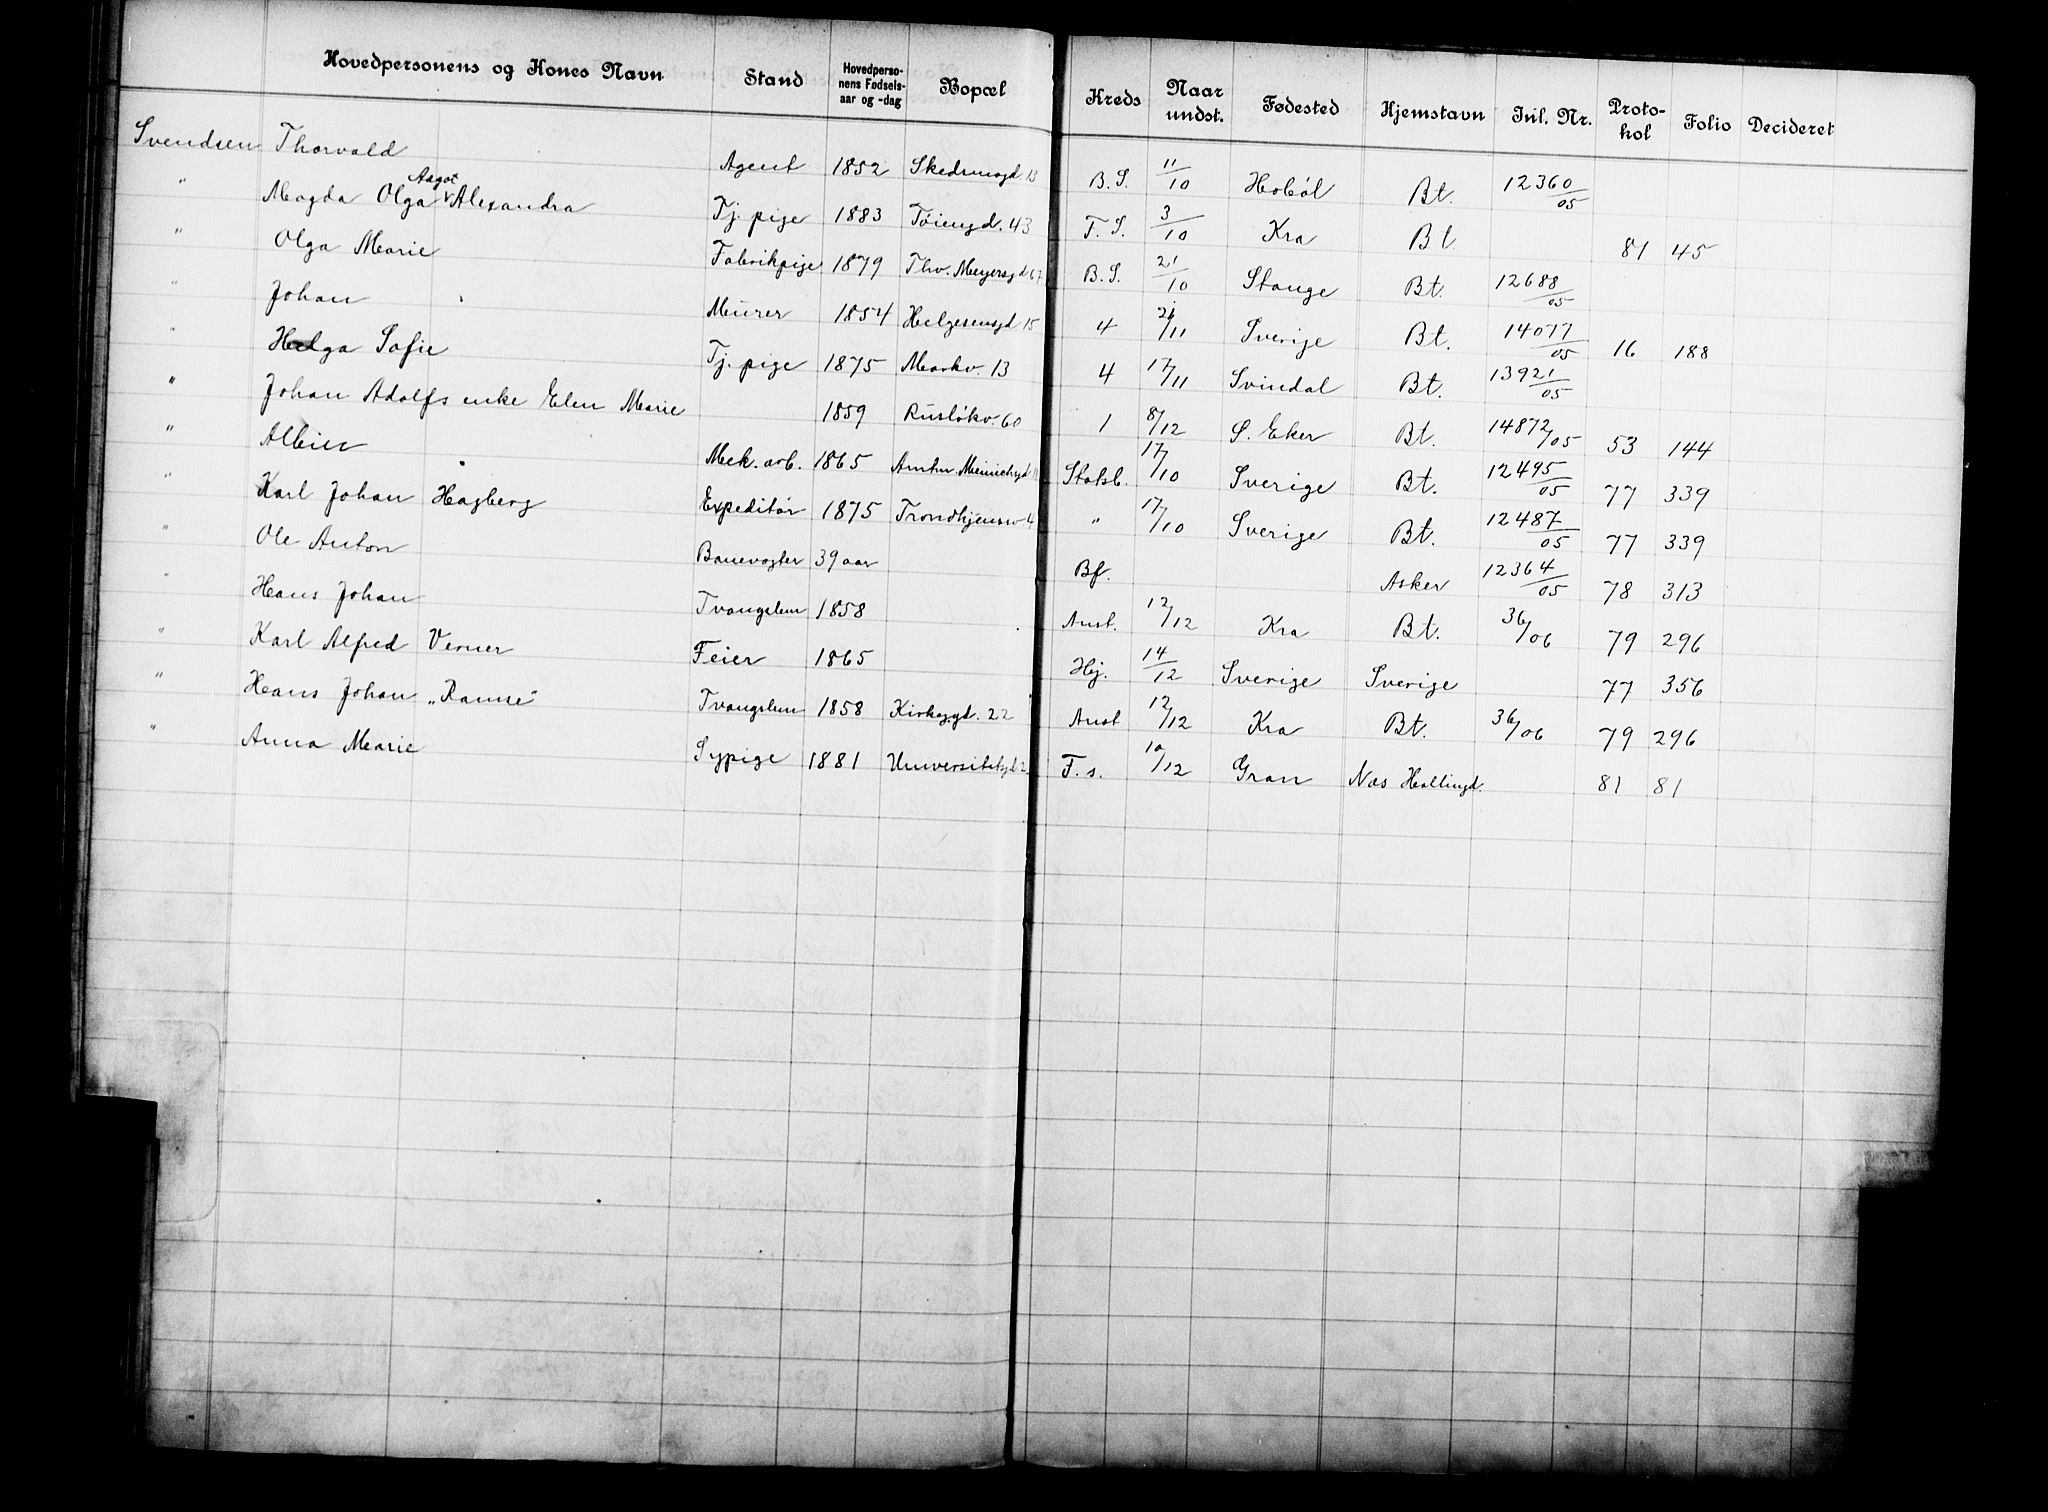 Hovedpersonens og Kones Navn Stand Hovedperso- nens Fødsels- aar og -dag Bopæl Kreds Naar undst. Fødested Hjemstavn Inl. Nr. Proto- kol Folio Decideret
Svendsen Thorvald Agent 1852 Skedsmogd 13 B. S. 11/10 Hobøl Bt. 12360/05
" Magda Olga Aagot Alexandra Tj. pige 1883 Tøiengd. 43 F. S. 3/10 Kra Bt 81 45
" Olga Marie Fabrikpige 1879 Thv. Meyersgd 67 B. S. 21/10 Stange Bt. 12688/05
" Johan Murer 1854 Helgesensgd 15 4 21/11 Sverige Bt. 14077/05 16 188
" Helga Sofie Tj. pige 1875 Markv. 13 4 17/11 Svindal Bt. 13921/05
" Johan Adolfs enke Elen Marie 1859 Ruseløkv. 60 1 8/12 S. Eker Bt. 14872/05 53 144
" Albin Mek. arb. 1865 Amtm. Meinichsgd 11 Stabb. 17/10 Sverige Bt. 12495/05 77 339
" Karl Johan Hagberg Expeditør 1875 Trondhjemsv 4 " 17/10 Sverige Bt. 12487/05 77 339
" Ole Anton Banevogter 39 aar Bf. Asker 12364/05 78 313
" Hans Johan Tvangslem 1858 Anst. 12/12 Kra Bt. 36/06 79 296
" Karl Alfred Verner Feier 1865 Hj. 14/12 Sverige Sverige 77 356
" Hans Johan „Ramse" Tvangslem 1858 Kirkegd. 22 Anst 12/12 Kra Bt. 36/06 79 296
" Anna Marie Sypige 1881 Universitetsgd 2 F. s. 10/12 Gran Næs Hallingd. 81 81